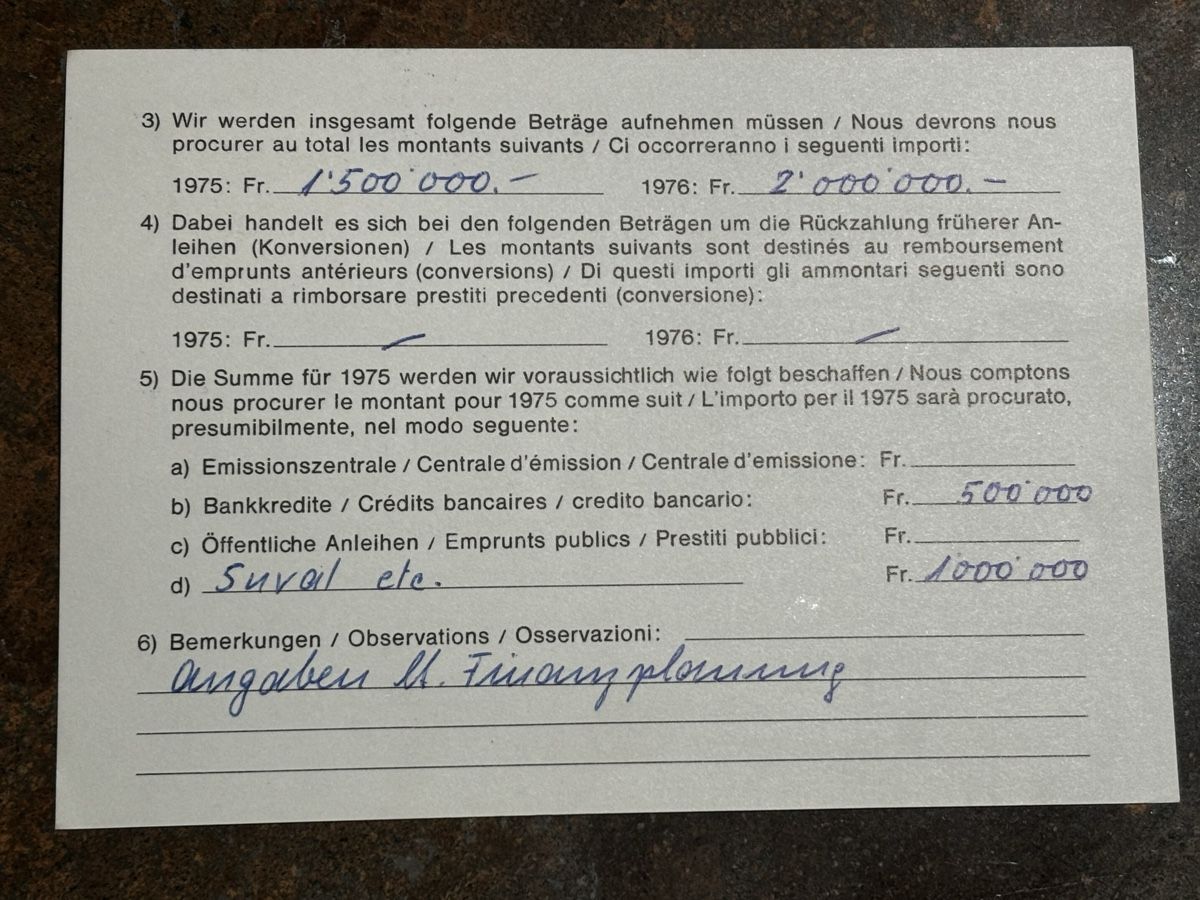 3) Wir werden insgesamt folgende Beträge aufnehmen müssen / Nous devrons nous
procurer au total les montants suivants / Ci occorreranno i seguenti importi:
1975: Fr. 1'500'000.– 1976: Fr. 2'000'000.–
4) Dabei handelt es sich bei den folgenden Beträgen um die Rückzahlung früherer An-
leihen (Konversionen) / Les montants suivants sont destinés au remboursement
d'emprunts antérieurs (conversions) / Di questi importi gli ammontari seguenti sono
destinati a rimborsare prestiti precedenti (conversione):
1975: Fr. – 1976: Fr. –
5) Die Summe für 1975 werden wir voraussichtlich wie folgt beschaffen / Nous comptons
nous procurer le montant pour 1975 comme suit / L'importo per il 1975 sarà procurato,
presumibilmente, nel modo seguente:
a) Emissionszentrale / Centrale d'émission / Centrale d'emissione: Fr.
b) Bankkredite / Crédits bancaires / credito bancario: Fr. 500'000
c) Öffentliche Anleihen / Emprunts publics / Prestiti pubblici: Fr.
d) Suval etc. Fr. 1000'000
6) Bemerkungen / Observations / Osservazioni:
Angaben lt. Finanzplanung